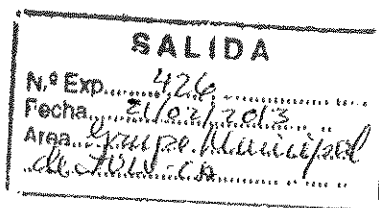 SALIDA
N.º Exp. 426
Fecha 21/02/2013
Area Grupo Municipal
de IULV-CA